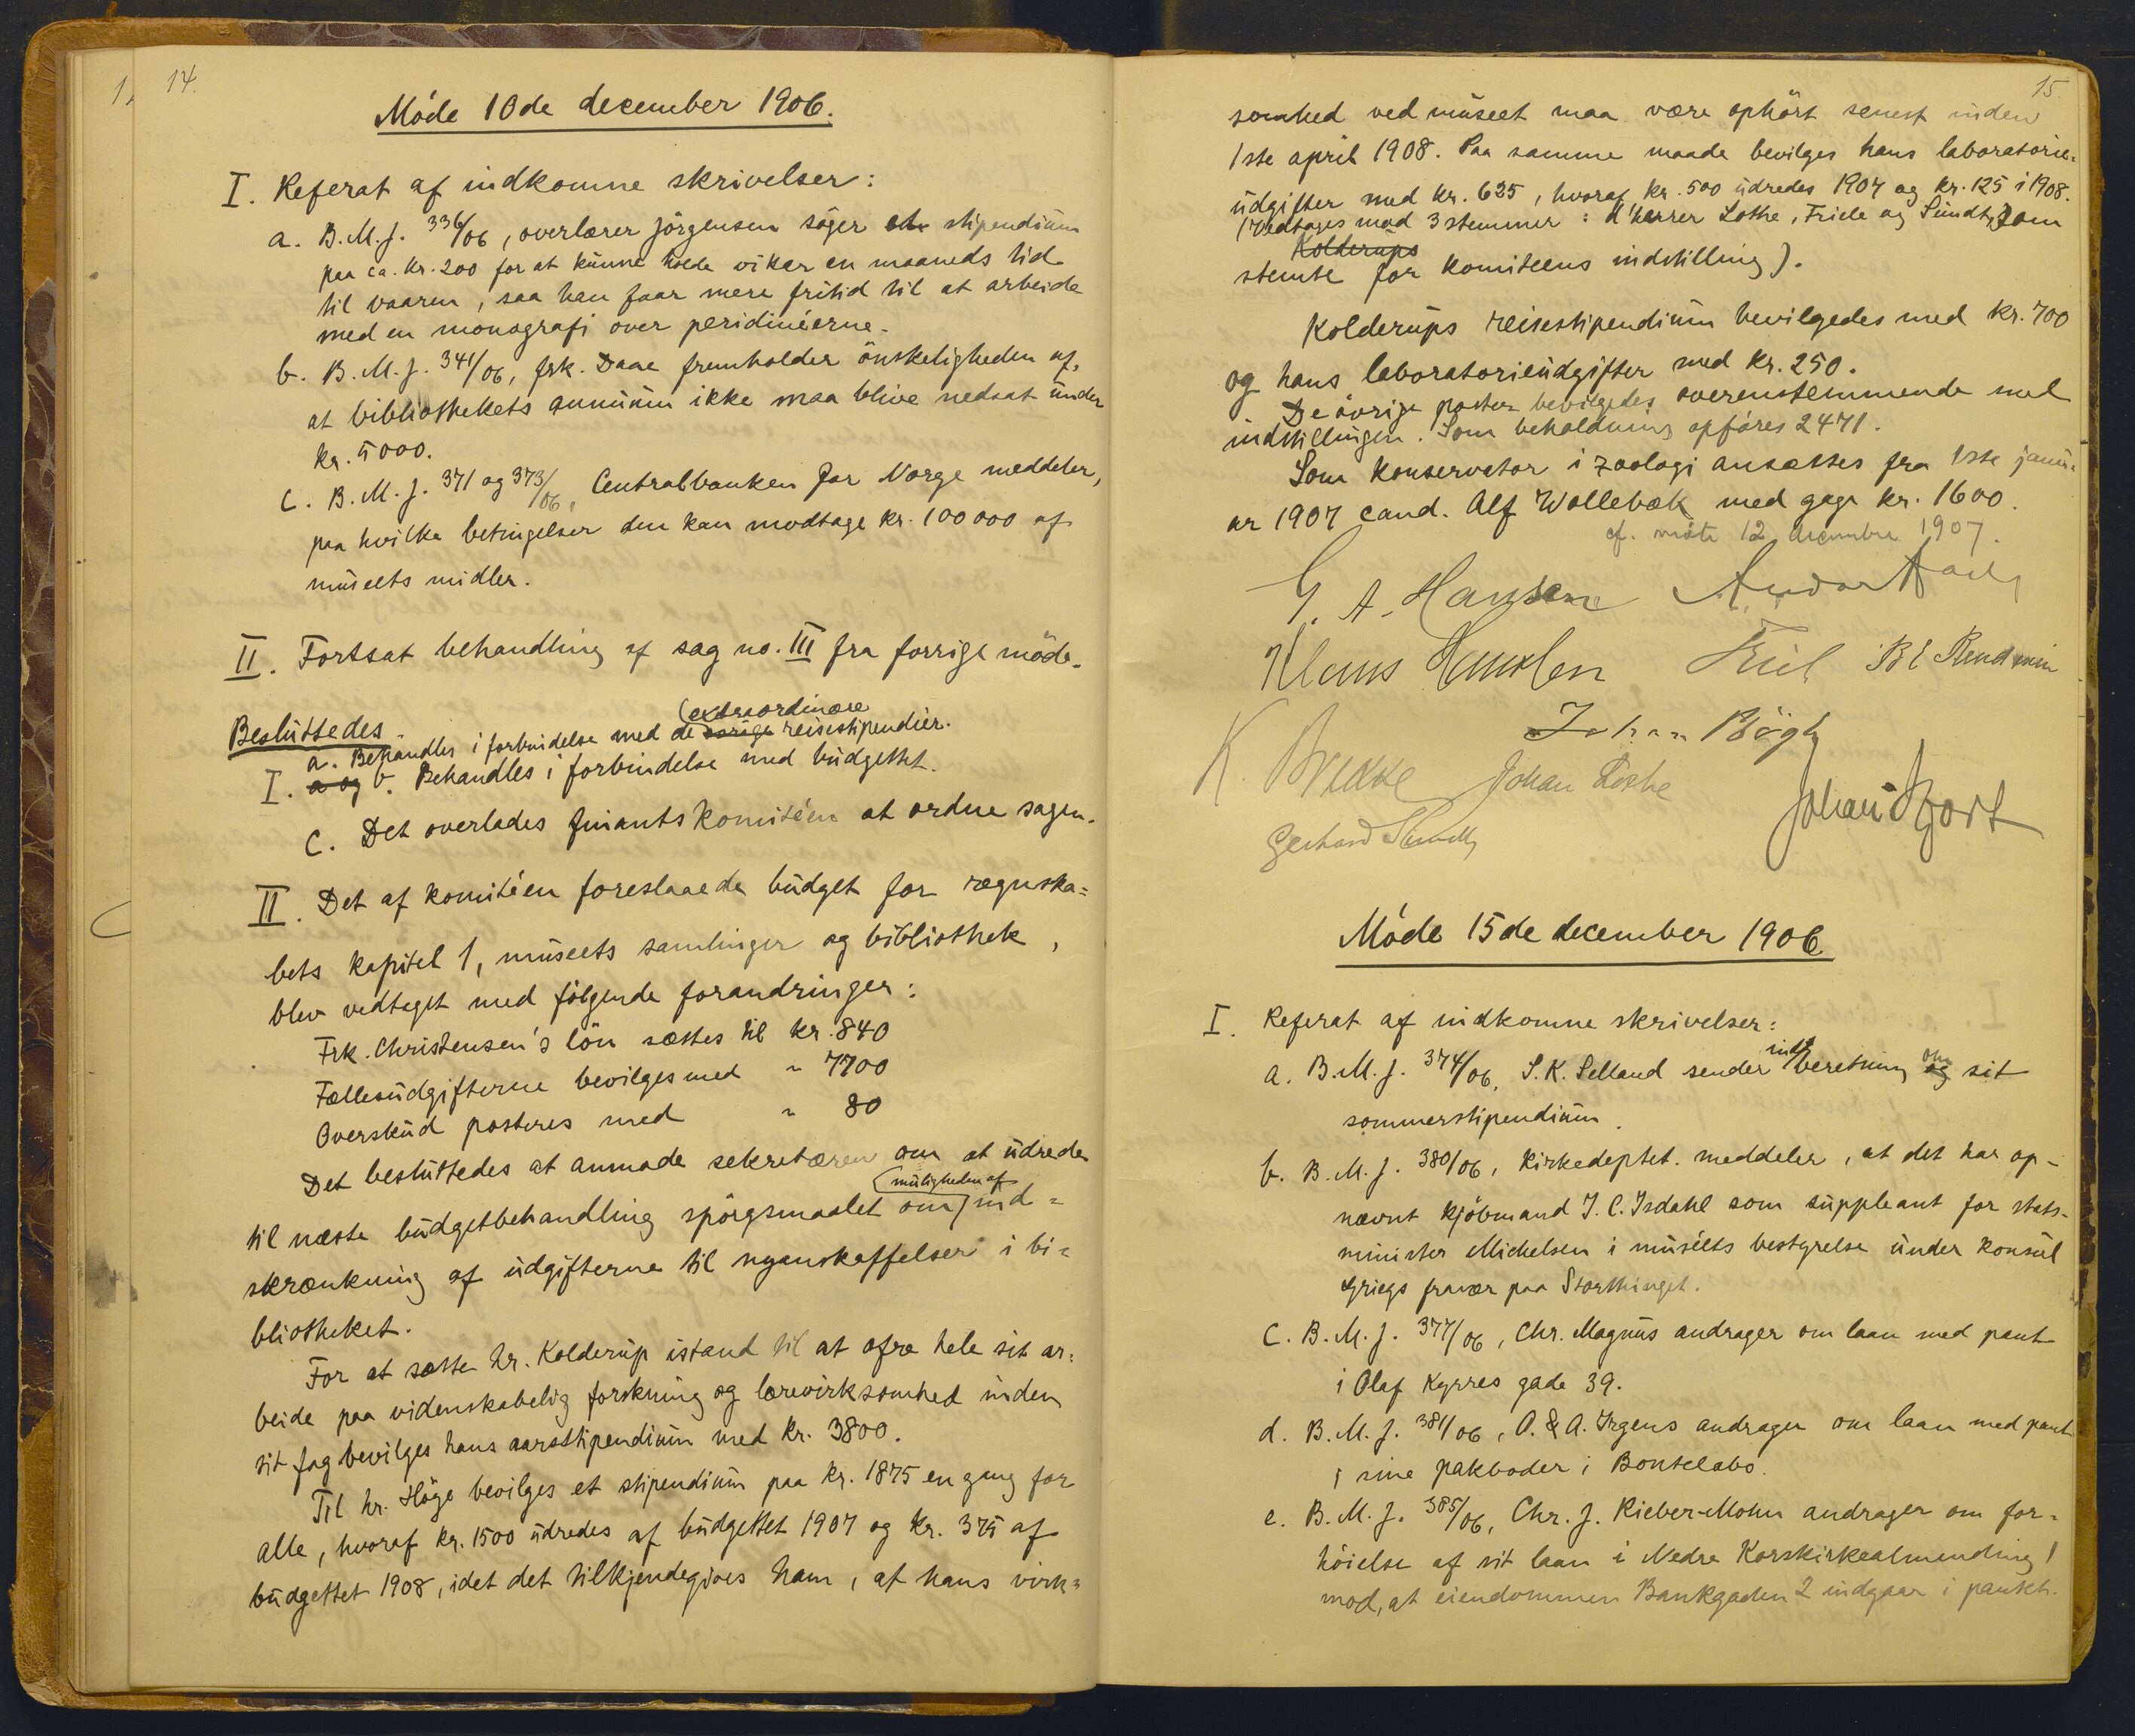 14.
Möde 10de december 1906.
I. Referat af indkomne skrivelser:
a. B.M.J. 336/06, overlærer Jörgensen söger et stipendium
paa ca. kr. 200 for at kunne holde vikar en maaneds tid
til vaaren, saa han faar mere fritid til at arbeide
med en monografi over peridinéerne.
b. B.M.J. 341/06, frk. Daae fremholder önskeligheden af,
at bibliothekets annuum ikke maa blive nedsat under
kr. 5000.
c. B.M.J. 371 og 373/06, Centralbanken for Norge meddeler,
paa hvilke betingelser den kan modtage kr. 100000 af
museets midler.
II. Fortsat behandling af sag no. III fra forrige möde.
Besluttedes
extraordinære
a. Behandles i forbindelse med de övrige reisestipendier.
I. a og b. Behandles i forbindelse med budgettet.
c. Det overlades finantskomitéen at ordne sagen.
II. Det af komitéen foreslaaede budget for regnska=
bets kapitel 1, museets samlinger og bibliothek,
blev vedtaget med fölgende forandringer:
Frk. Christensen's lön sættes til kr. 840
Fællesudgifterne bevilges med " 7700
Overskud posteres med " 80
Det besluttedes at anmode sekretæren om at udrede
muligheden af
til næste budgetbehandling spörgsmaalet om ind=
skrænkning af udgifterne til nyanskaffelser i bi=
bliotheket.
For at sætte hr. Kolderup istand til at ofre hele sit ar=
beide paa videnskabelig forskning og lærevirksomhed inden
sit fag bevilges hans aarsstipendium med kr. 3800.
Til hr. Höge bevilges et stipendium paa kr. 1875 en gang for
alle, hvoraf kr. 1500 udredes af budgettet 1907 og kr. 375 af
budgettet 1908, idet det tilkjendegives ham, at hans virk=
15.
somhed ved museet maa være ophört senest inden
1ste april 1908. Paa samme maade bevilges hans laboratorie=
udgifter med kr. 625, hvoraf kr. 500 udredes 1907 og kr. 125 i 1908.
(Vedtages mod 3 stemmer: d'herrer Lothe, Friele og Sundt, som
Kolderups
stemte for komiteens indstilling).
Kolderups reisestipendium bevilgedes med kr. 700
og hans laboratorieudgifter med kr. 250.
De övrige poster bevilgedes overenstemmende med
indstillingen. Som beholdning opföres 2471.
Som konservator i zoologi ansættes fra 1ste janu=
ar 1907 cand. Alf Wollebæk med gage kr. 1600.
cf. möte 12 decembre 1907.
G. A. Hansen
Klaus Hanssen
Johan Bögh
K. Brekke Johan Lothe
Johan Hjort
Gerhard Sundt
Möde 15de december 1906.
I. Referat af indkomne skrivelser:
indb om
a. B.M.J. 374/06, S.K. Selland sender beretning og sit
sommerstipendium.
b. B.M.J. 380/06, Kirkedeptet. meddeler, at det har op-
nævnt kjöbmand J.C. Isdahl som suppleant for stats-
minister Michelsen i muséets bestyrelse under konsul
Griegs fravær paa Storthinget.
c. B.M.J. 377/06, Chr. Magnus andrager om laan med pant
i Olaf Kyrres gade 39.
d. B.M.J. 381/06, O. & A. Irgens andrager om laan med pant
i sine pakboder i Bontelabo.
e. B.M.J. 385/06, Chr. J. Rieber-Mohn andrager om for=
höielse af sit laan i Nedre Korskirkealmending 1
mod, at eiendommen Bankgaden 2 indgaar i pantet.